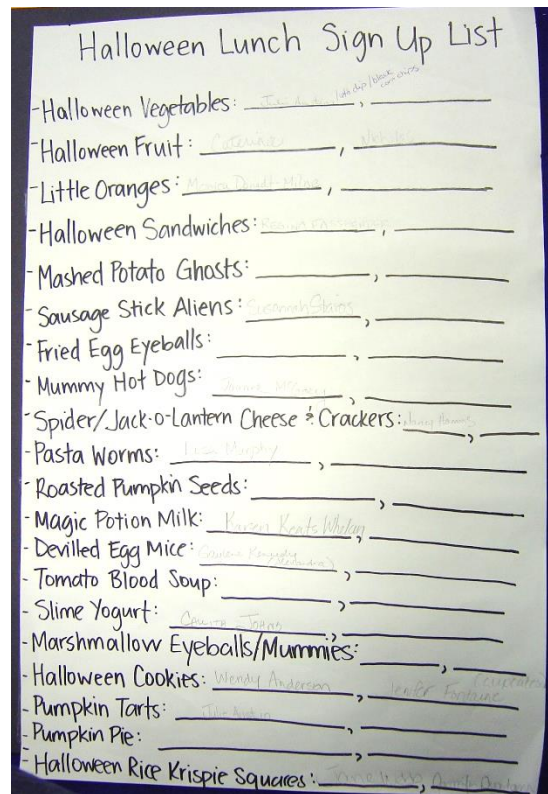 Halloween Lunch Sign Up List
-Halloween Vegetables: ,
-Halloween Fruit: Caterina ,
-Little Oranges: ,
-Halloween Sandwiches: ,
-Mashed Potato Ghosts: ,
-Sausage Stick Aliens: Susannah ,
-Fried Egg Eyeballs: ,
-Mummy Hot Dogs: ,
-Spider/Jack-o-Lantern Cheese & Crackers: ,
-Pasta Worms: Murphy ,
-Roasted Pumpkin Seeds: ,
-Magic Potion Milk: Karen Keats Whelan ,
-Devilled Egg Mice: ,
-Tomato Blood Soup: ,
-Slime Yogurt: ,
-Marshmallow Eyeballs/Mummies: ,
-Halloween Cookies: Wendy Anderson , Fortune
-Pumpkin Tarts: ,
-Pumpkin Pie: ,
-Halloween Rice Krispie Squares: ,